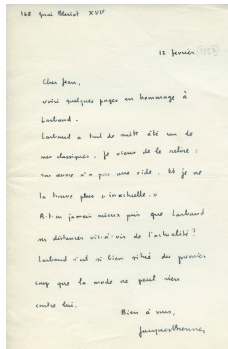 168 Quai Blériot XVIe
12 février (1957)
Cher Jean,
voici quelques pages en hommage à
Larbaud.
Larbaud a tout de suite été un de
mes classiques. Je viens de le relire :
son œuvre n'a pas une ride. Et je ne
la trouve plus « inactuelle. »
A-t-on jamais mieux pris que Larbaud
ses distances vis-à-vis de l'actualité ?
Larbaud s'est si bien situé du premier
coup que la mode ne peut rien
contre lui.
Bien à vous,
Jacques Brenner